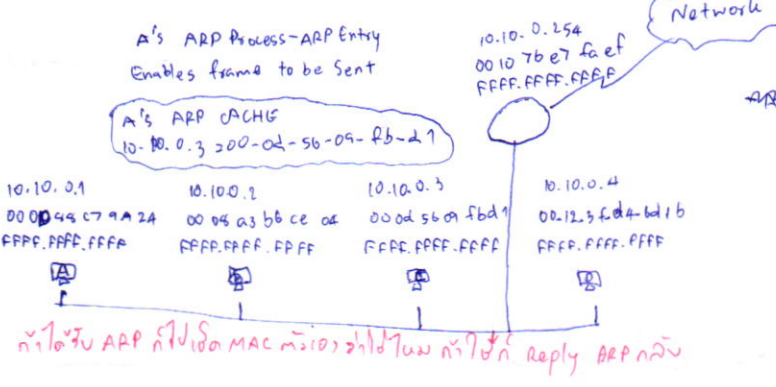 A's ARP Process-ARP Entry
Enables frame to be Sent
A's ARP CACHE
10.10.0.3 = 00-0d-56-09-fb-d1
10.10.0.254
0010 7be7 faef
FFFF.FFFF.FFFF
Network
10.10.0.1
FFFF.FFFF.FFFF
A
10.10.0.2
00 08 a3 b6 ce 04
FFFF.FFFF.FFFF
B
10.10.0.3
000d 5609 fbd1
FFFF.FFFF.FFFF
10.10.0.4
00-12-3f-d4-6d-1b
FFFF.FFFF.FFFF
D
ถ้าได้รับ ARP ก็ไปเช็ค MAC ตัวเอง ว่าใช่ไหม ถ้าใช่ก็ Reply ARP กลับ